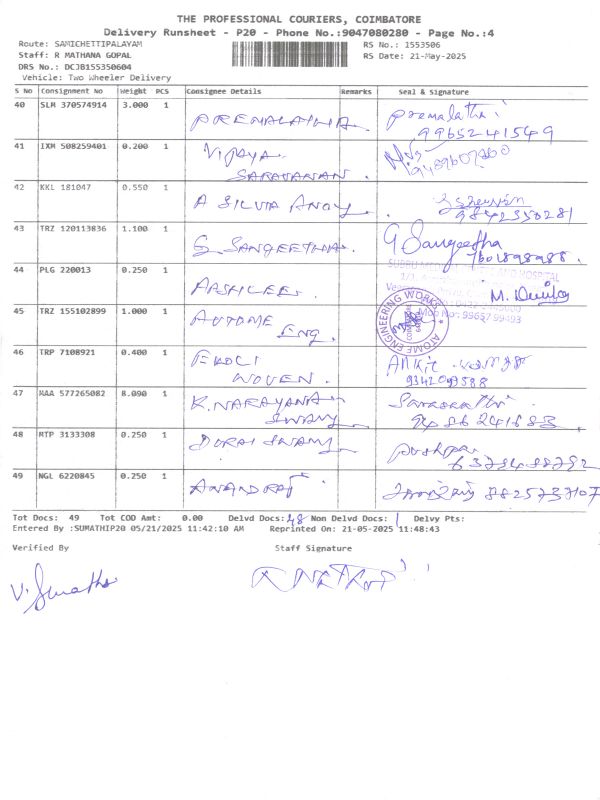 THE PROFESSIONAL COURIERS, COIMBATORE
Delivery Runsheet - P20 - Phone No.:9047080280 - Page No.:4
Route: SAMICHETTIPALAYAM
RS No.: 1553506
Staff: R MATHANA GOPAL
RS Date: 21-May-2025
DRS No.: DCJB155350604
Vehicle: Two Wheeler Delivery
S No Consignment No Weight PCS Consignee Details Remarks Seal & Signature
40 SLM 370574914 3.000 1 PREMALATHA Premalatha
9965241549
41 IXM 508259401 0.200 1 VIJAYA
SARAVANAN. 9489607260
42 KKL 181047 0.550 1 A SILVIA
9842350281
43 TRZ 120113836 1.100 1 G. SANGEETHA. G Sangeetha
7601898988.
44 PLG 220013 0.250 1
HOSPITAL
45 TRZ 155102899 1.000 1 AUTOME
ENG. ATOME ENGINEERING WORKS
46 TRP 7108921 0.400 1 Ankit
WOVEN. 9342093588
47 MAA 577265082 8.090 1 K.NARAYANA
SWAMY
9486241683
48 RTP 3133308 0.250 1 DURAI SWAMY Pushpa
6379488792
49 NGL 6220845 0.250 1 ANANDRAJ 8825737107
Tot Docs: 49 Tot COD Amt: 0.00 Delvd Docs: 48 Non Delvd Docs: 1 Delvy Pts:
Entered By :SUMATHIP20 05/21/2025 11:42:10 AM Reprinted On: 21-05-2025 11:48:43
Verified By Staff Signature
V. Sumathi